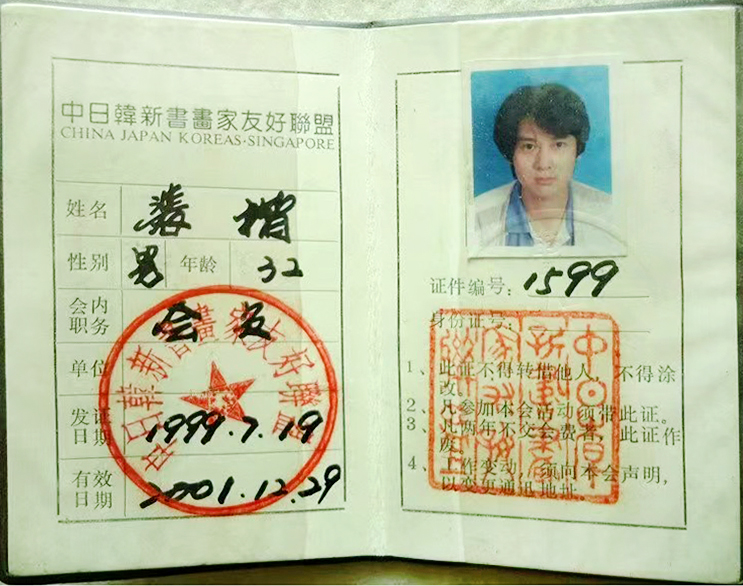 中日韓新書畫家友好聯盟
CHINA JAPAN KOREAS·SINGAPORE
姓名
性别 男 年龄 32
会内职务 会友
单位
发证日期 1999.7.19
有效日期 2001.12.29
中日韓新書畫家友好聯盟
证件编号：1599
身份证号：
1、此证不得转借他人，不得涂
改。
2、凡参加本会活动须带此证。
3、凡两年不交会费者，此证作
废。
4、工作变动，须向本会声明，
以变更通讯地址。